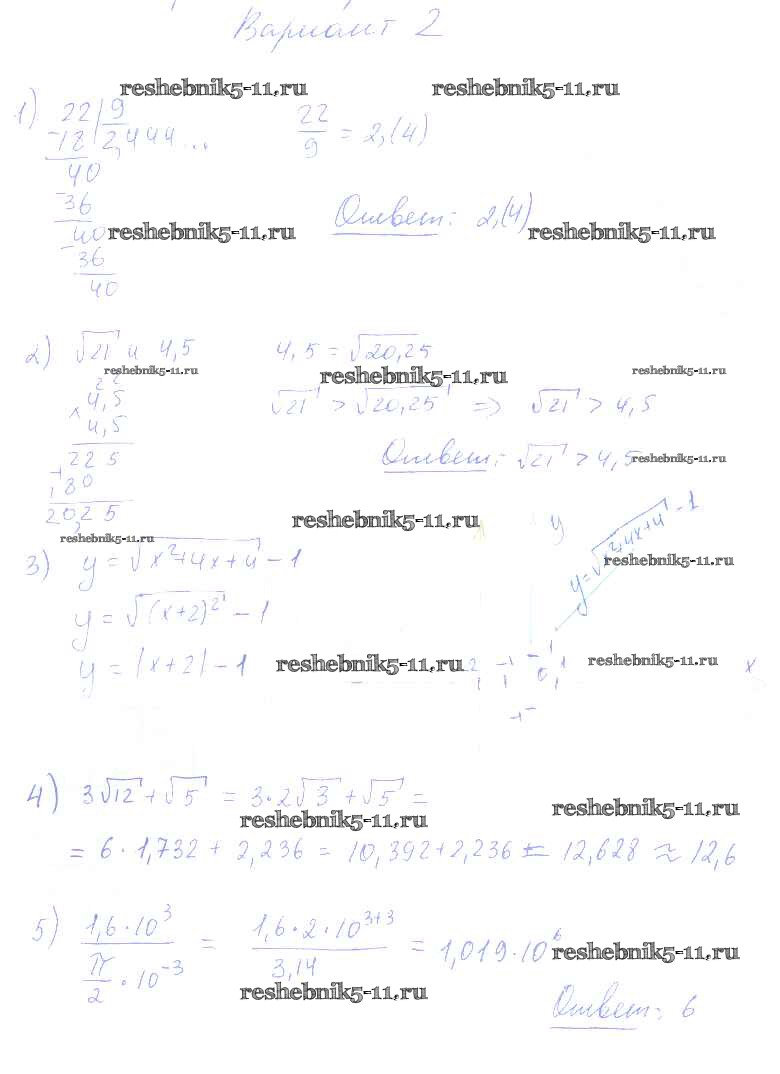 Вариант 2
reshebnik5-11.ru reshebnik5-11.ru
1) 22 | 9 22/9 = 2,(4)
-18 2,444...
40
-36
Ответ: 2,(4)
40 reshebnik5-11.ru reshebnik5-11.ru
-36
40
2) √21 и 4,5 4,5 = √20,25
reshebnik5-11.ru reshebnik5-11.ru reshebnik5-11.ru
2 2
× 4,5 √21 > √20,25 => √21 > 4,5
4,5
+ 225 Ответ: √21 > 4,5 reshebnik5-11.ru
180
20,25 reshebnik5-11.ru y
reshebnik5-11.ru
3) y = √(x²+4x+4) - 1 y = √(x²+4x+4) - 1 reshebnik5-11.ru
y = √((x+2)²) - 1
y = |x+2| - 1 reshebnik5-11.ru 2 -1 0 1 reshebnik5-11.ru x
4) 3√12 + √5 = 3·2√3 + √5 =
reshebnik5-11.ru reshebnik5-11.ru
= 6·1,732 + 2,236 = 10,392+2,236 = 12,628 ≈ 12,6
5) (1,6·10³)/(π/2·10⁻³) = (1,6·2·10³⁺³)/3,14 = 1,019·10⁶ reshebnik5-11.ru
reshebnik5-11.ru
Ответ: 6